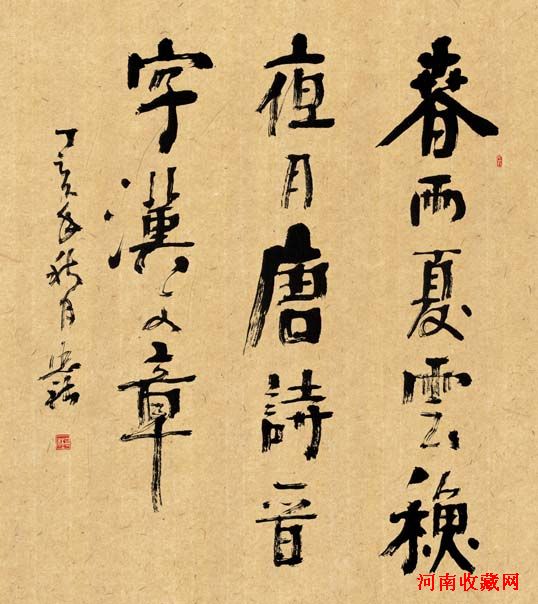 春雨夏雲穐
夜月唐詩晉
字漢文章
丁亥年秋月
河南收藏网